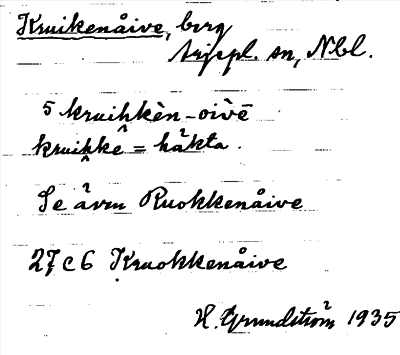 Kruikenåive, berg
Arjepl. sn, Nbl.
5 kruihkèn-oivē
kruihkê = häkta.
Se även Ruokkenåive
27 C 6 Kruokkenåive
H. Grundström 1935